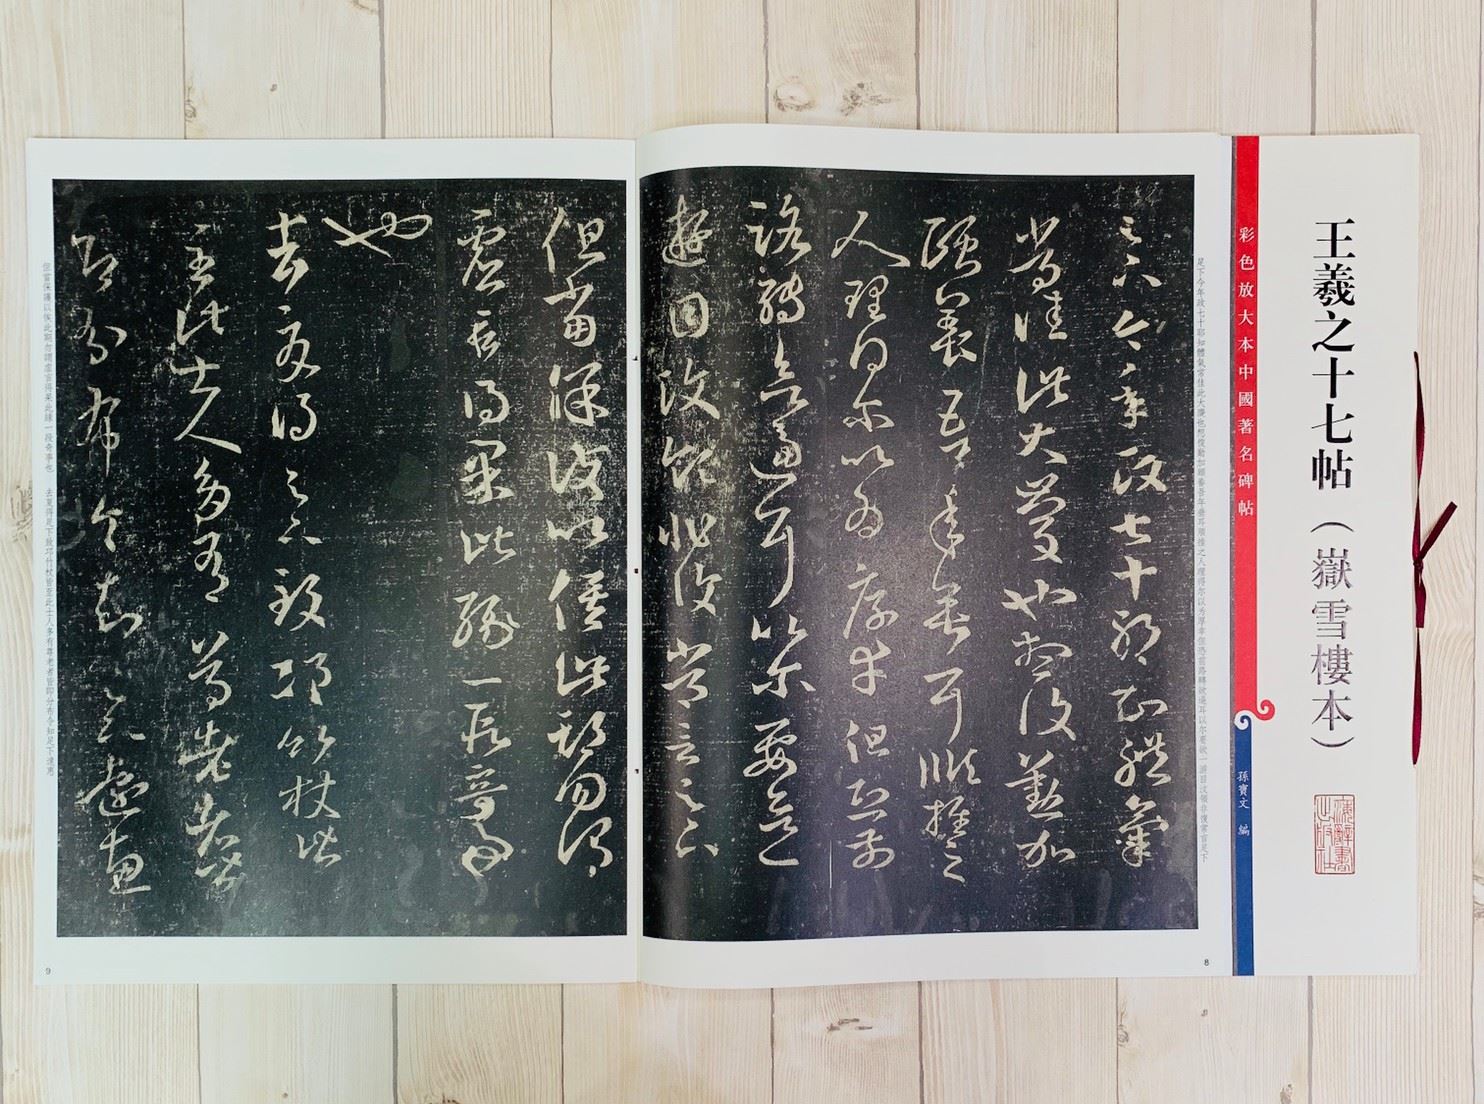 王羲之十七帖（嶽雪樓本）
彩色放大本中國著名碑帖
孫寶文 編
足下今年政七十耶知體氣常佳此大慶也想復懃加頤養吾年垂耳順推之人理得尔以為厚幸但恐前路轉欲逼耳以尔要欲一遊目汶領非復常言足下
足下今年政七十耶知體氣
常佳此大慶也想復懃加
頤養吾年垂耳順推之
人理得尔以為厚幸但恐前
路轉欲逼耳以尔要欲一
遊目汶領非復常言足下
8
但當保護以俟此期勿謂
虛言得果此緣一段奇事
也
去夏得足下致邛竹杖皆
至此士人多有尊老者皆
即分布令知足下遠惠
但當保護以俟此期勿謂虛言得果此緣一段奇事也　去夏得足下致邛竹杖皆至此士人多有尊老者皆即分布令知足下遠惠
9